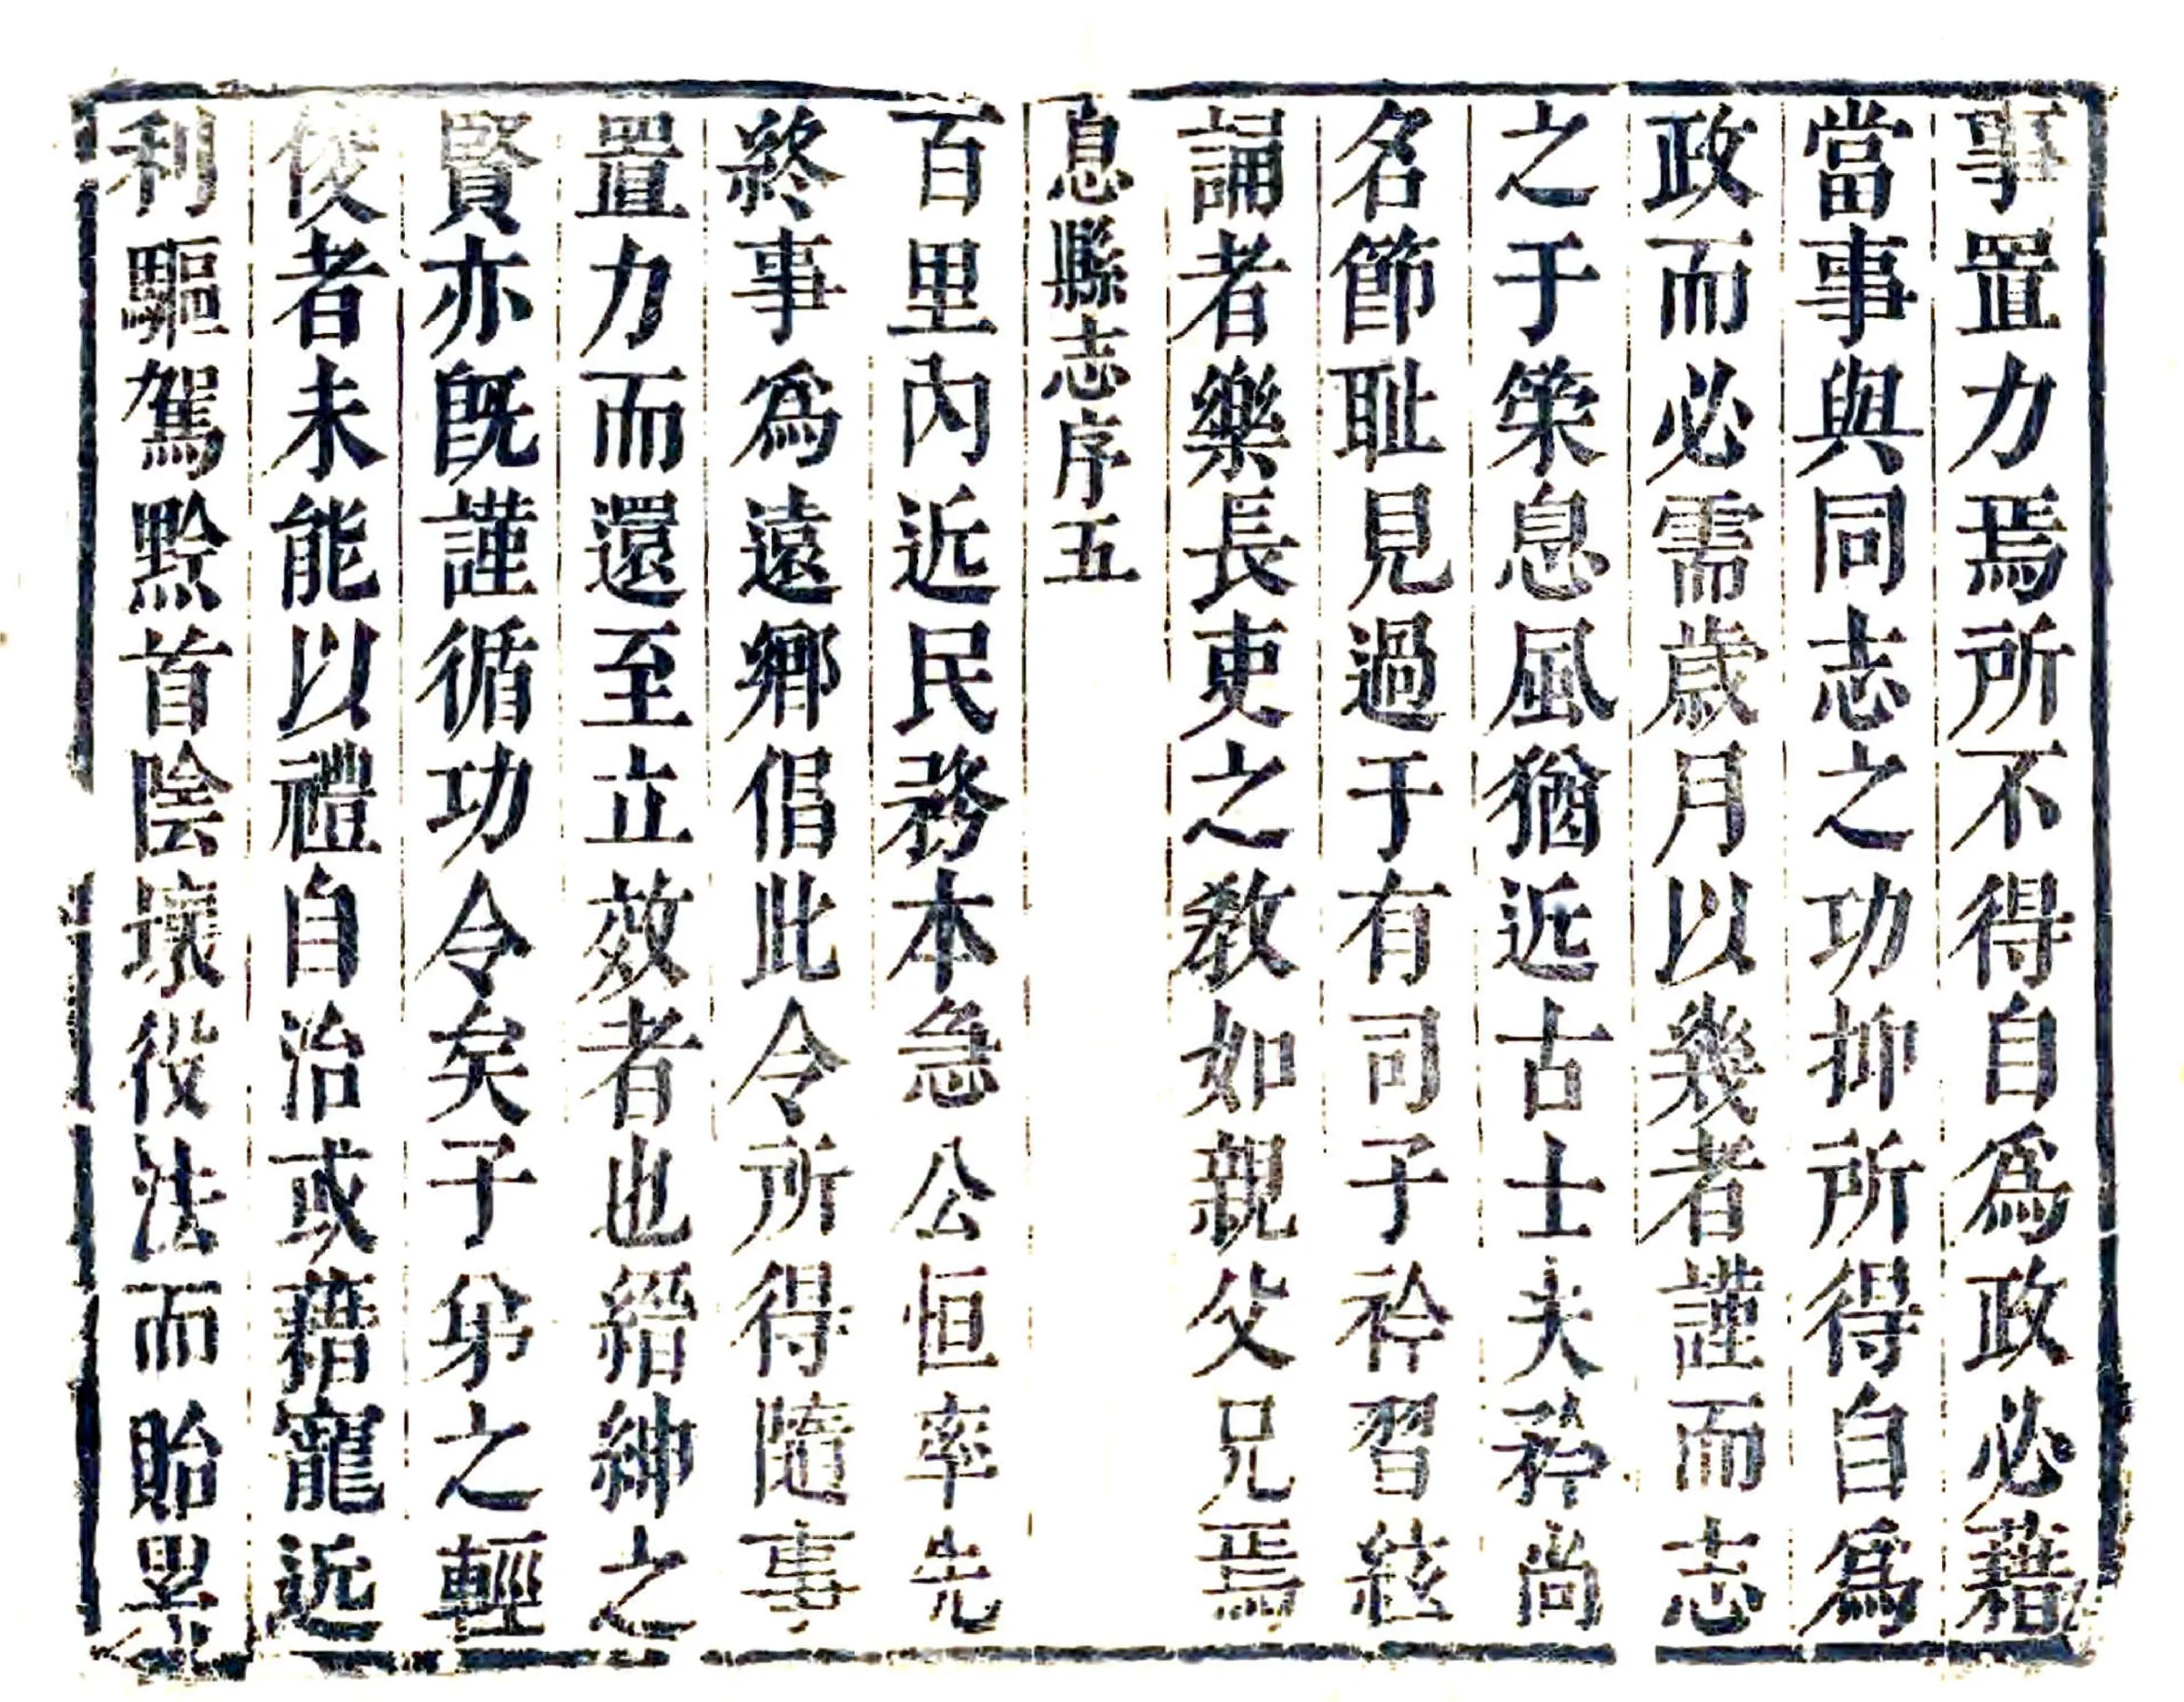 事置力焉所不得自爲政必藉
當事與同志之功抑所得自爲
政而必需歲月以幾者謹而志
之于策息風猶近古士夫矜尚
名節耻見過于有司子衿習絃
誦者樂長吏之教如親父兄焉
息縣志序五
百里內近民務本急公恒率先
終事爲遠鄉倡此令所得隨事
置力而還至立效者也縉紳之
賢亦既謹循功令矣子弟之輕
俊者未能以禮自治或藉寵近
利驅駕黔首陰壞役法而貽累